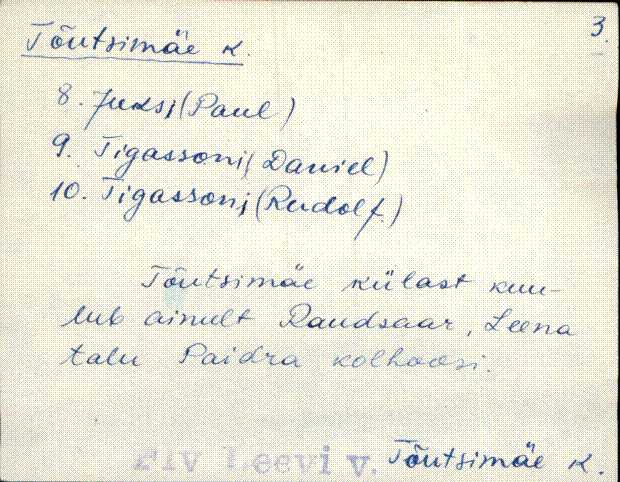 3.
Tõutsimäe k.
8. Juksi, (Paul)
9. Tigassoni, (Daniel)
10. Tigassoni, (Rudolf.)
Tõutsimäe külast kuu-
lub ainult Raudsaar, Leena
talu Paidra kolhoosi.
Plv Leevi v. Tõutsimäe k.